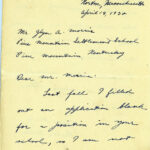 Norton, Massachusetts
April 14, 1938
Mr. Glyn A. Morris
Pine Mountain Settlement School
Pine Mountain, Kentucky
Dear Mr. Morris:
Last fall I filled
out an application blank
for a position in your
school, so I am not